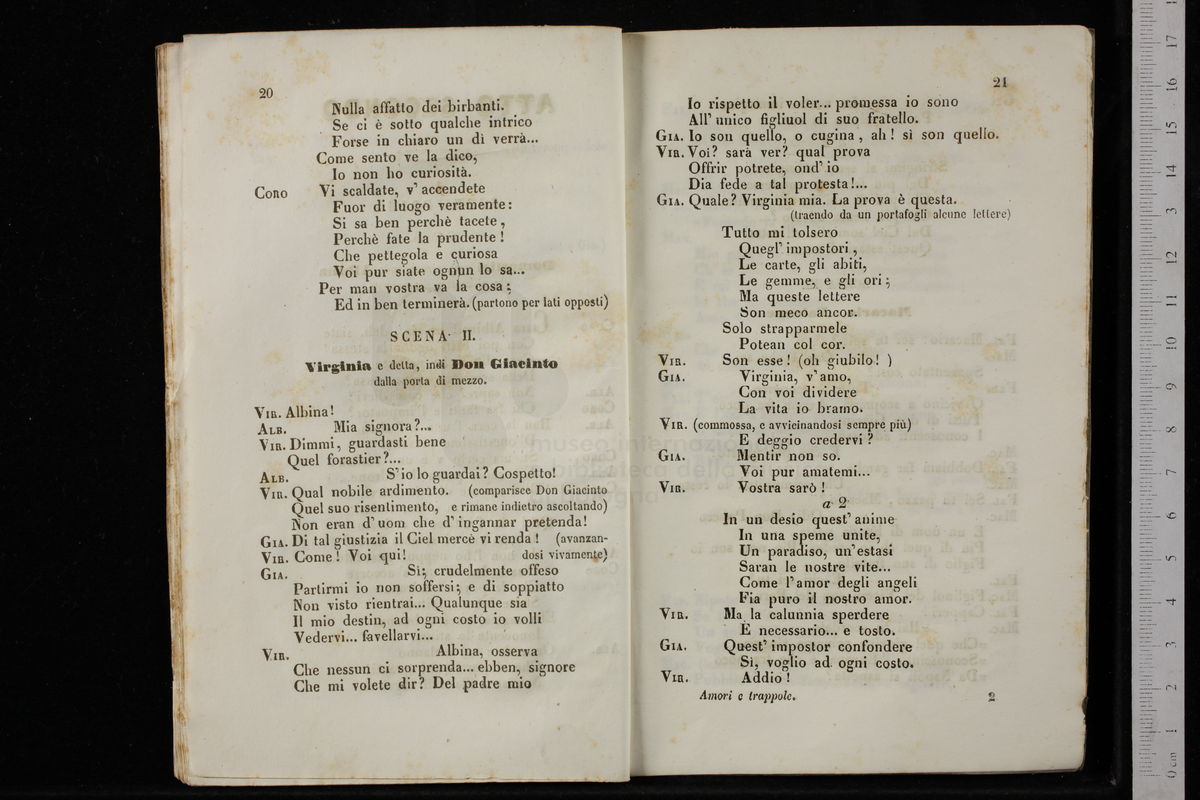 20
Nulla affatto dei birbanti.
Se ci è sotto qualche intrico
Forse in chiaro un dì verrà...
Come sento ve la dico,
Io non ho curiosità.
Coro Vi scaldate, v' accendete
Fuor di luogo veramente:
Si sa ben perchè tacete,
Perchè fate la prudente!
Che pettegola e curiosa
Voi pur siate ognun lo sa...
Per man vostra va la cosa;
Ed in ben terminerà. (partono per lati opposti)
SCENA II.
Virginia e detta, indi Don Giacinto
dalla porta di mezzo.
Vir. Albina!
Alb. Mia signora?...
Vir. Dimmi, guardasti bene
Quel forastier?...
Alb. S' io lo guardai? Cospetto!
Vir. Qual nobile ardimento. (comparisce Don Giacinto
Quel suo risentimento, e rimane indietro ascoltando)
Non eran d' uom che d' ingannar pretenda!
Gia. Di tal giustizia il Ciel mercè vi renda! (avanzan-
Vir. Come! Voi qui! dosi vivamente)
Gia. Sì; crudelmente offeso
Partirmi io non soffersi; e di soppiatto
Non visto rientrai... Qualunque sia
Il mio destin, ad ogni costo io volli
Vedervi... favellarvi...
Vir. Albina, osserva
Che nessun ci sorprenda... ebben, signore
Che mi volete dir? Del padre mio
21
Io rispetto il voler... promessa io sono
All' unico figliuol di suo fratello.
Gia. Io son quello, o cugina, ah! sì son quello.
Vir. Voi? sarà ver? qual prova
Offrir potrete, ond' io
Dia fede a tal protesta!...
Gia. Quale? Virginia mia. La prova è questa.
(traendo da un portafogli alcune lettere)
Tutto mi tolsero
Quegl' impostori,
Le carte, gli abiti,
Le gemme, e gli ori;
Ma queste lettere
Son meco ancor.
Solo strapparmele
Potean col cor.
Vir. Son esse! (oh giubilo! )
Gia. Virginia, v' amo,
Con voi dividere
La vita io bramo.
Vir. (commossa, e avvicinandosi sempre più)
E deggio credervi?
Gia. Mentir non so.
Voi pur amatemi...
Vir. Vostra sarò!
a 2
In un desio quest' anime
In una speme unite,
Un paradiso, un' estasi
Saran le nostre vite...
Come l' amor degli angeli
Fia puro il nostro amor.
Vir. Ma la calunnia sperdere
È necessario... e tosto.
Gia. Quest' impostor confondere
Sì, voglio ad ogni costo.
Vir. Addio!
Amori e trappole. 2